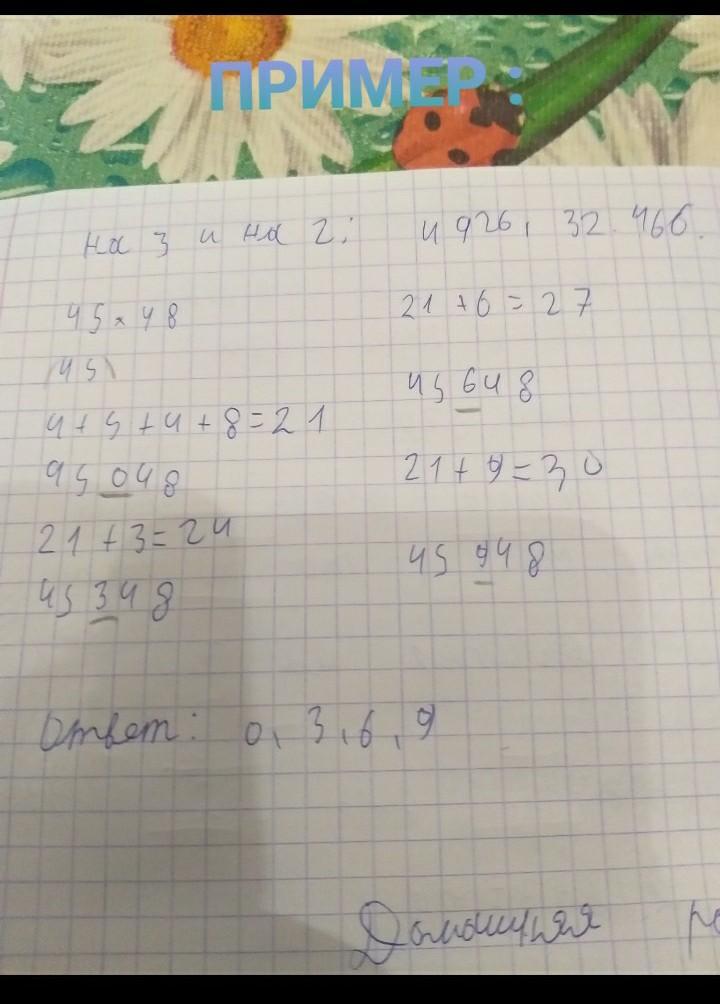 ПРИМЕР :
на 3 и на 2; 4 926, 32 466.
45*48
(45)
4+5+4+8=21
45 048
21+3=24
45 348
21+6=27
45 648
21+9=30
45 948
Ответ: 0, 3, 6, 9
Домашняя